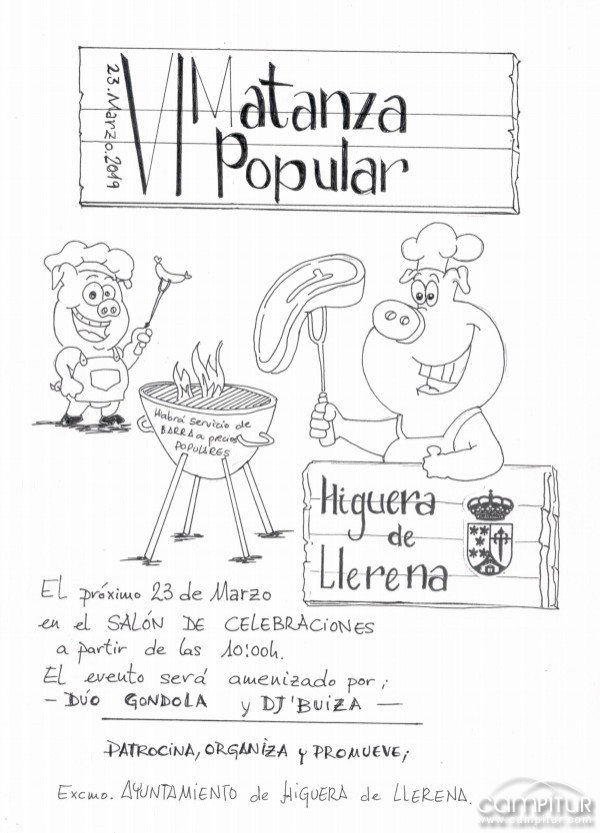 23.Marzo.2019
VI Matanza
Popular
Habrá servicio de
BARRA a precios
POPULARES
Higuera
de
Llerena
El próximo 23 de Marzo
en el SALÓN DE CELEBRACIONES
a partir de las 10:00h.
El evento será amenizado por;
- DÚO GONDOLA y DJ'BUIZA -
PATROCINA, ORGANIZA y PROMUEVE;
Excmo. AYUNTAMIENTO de HIGUERA de LLERENA.
campitur
www.campitur.com